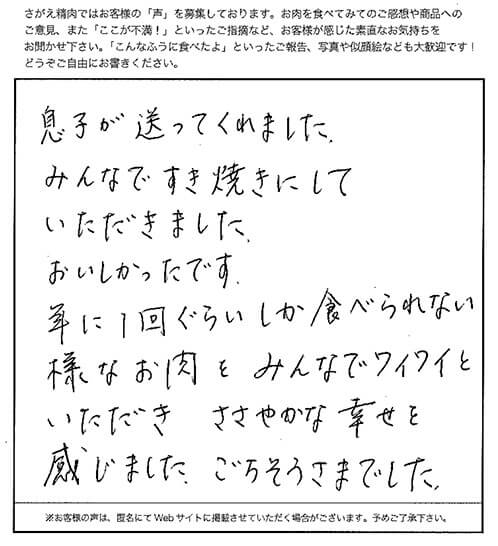 さがえ精肉ではお客様の「声」を募集しております。お肉を食べてみてのご感想や商品への
ご意見、また「ここが不満！」といったご指摘など、お客様が感じた素直なお気持ちを
お聞かせ下さい。「こんなふうに食べたよ」といったご報告、写真や似顔絵なども大歓迎です！
どうぞご自由にお書きください。
息子が送ってくれました。
みんなですき焼きにして
いただきました。
おいしかったです。
年に1回ぐらいしか食べられない
様なお肉をみんなでワイワイと
いただき ささやかな幸せを
感じました。ごちそうさまでした。
※お客様の声は、匿名にてWebサイトに掲載させていただく場合がございます。予めご了承下さい。